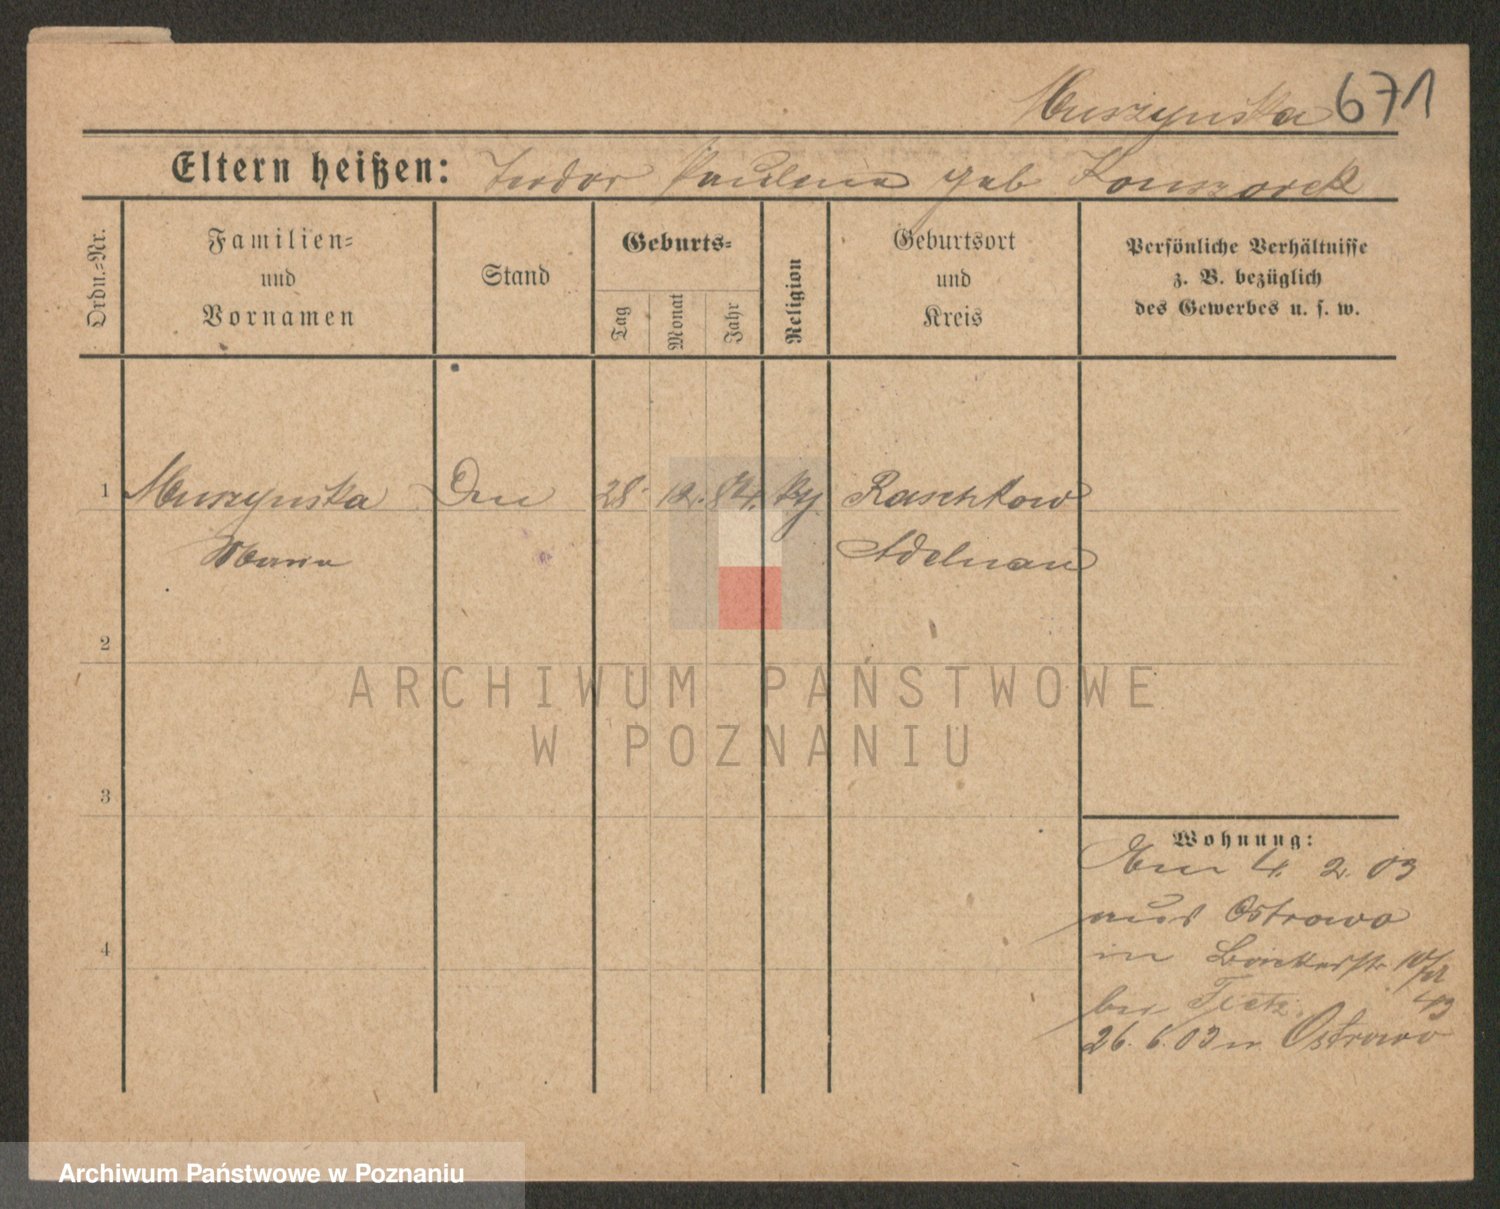 Muszynska 671
Eltern heißen: Teodor Paulina geb
Ordn.-Nr.
Familien-
und
Vornamen
Stand
Geburts-
Tag
Monat
Jahr
Religion
Geburtsort
und
Kreis
Persönliche Verhältnisse
z. B. bezüglich
des Gewerbes u. s. w.
1 Muszynska 28. 12. 84. Raschkow
Maria Adelnau
2
ARCHIWUM PAŃSTWOWE
W POZNANIU
3
Wohnung:
4. 2. 03
aus Ostrowo
4
in Bäckerstr
bei Tietz
26. 6. 03 n. Ostrowo
Archiwum Państwowe w Poznaniu